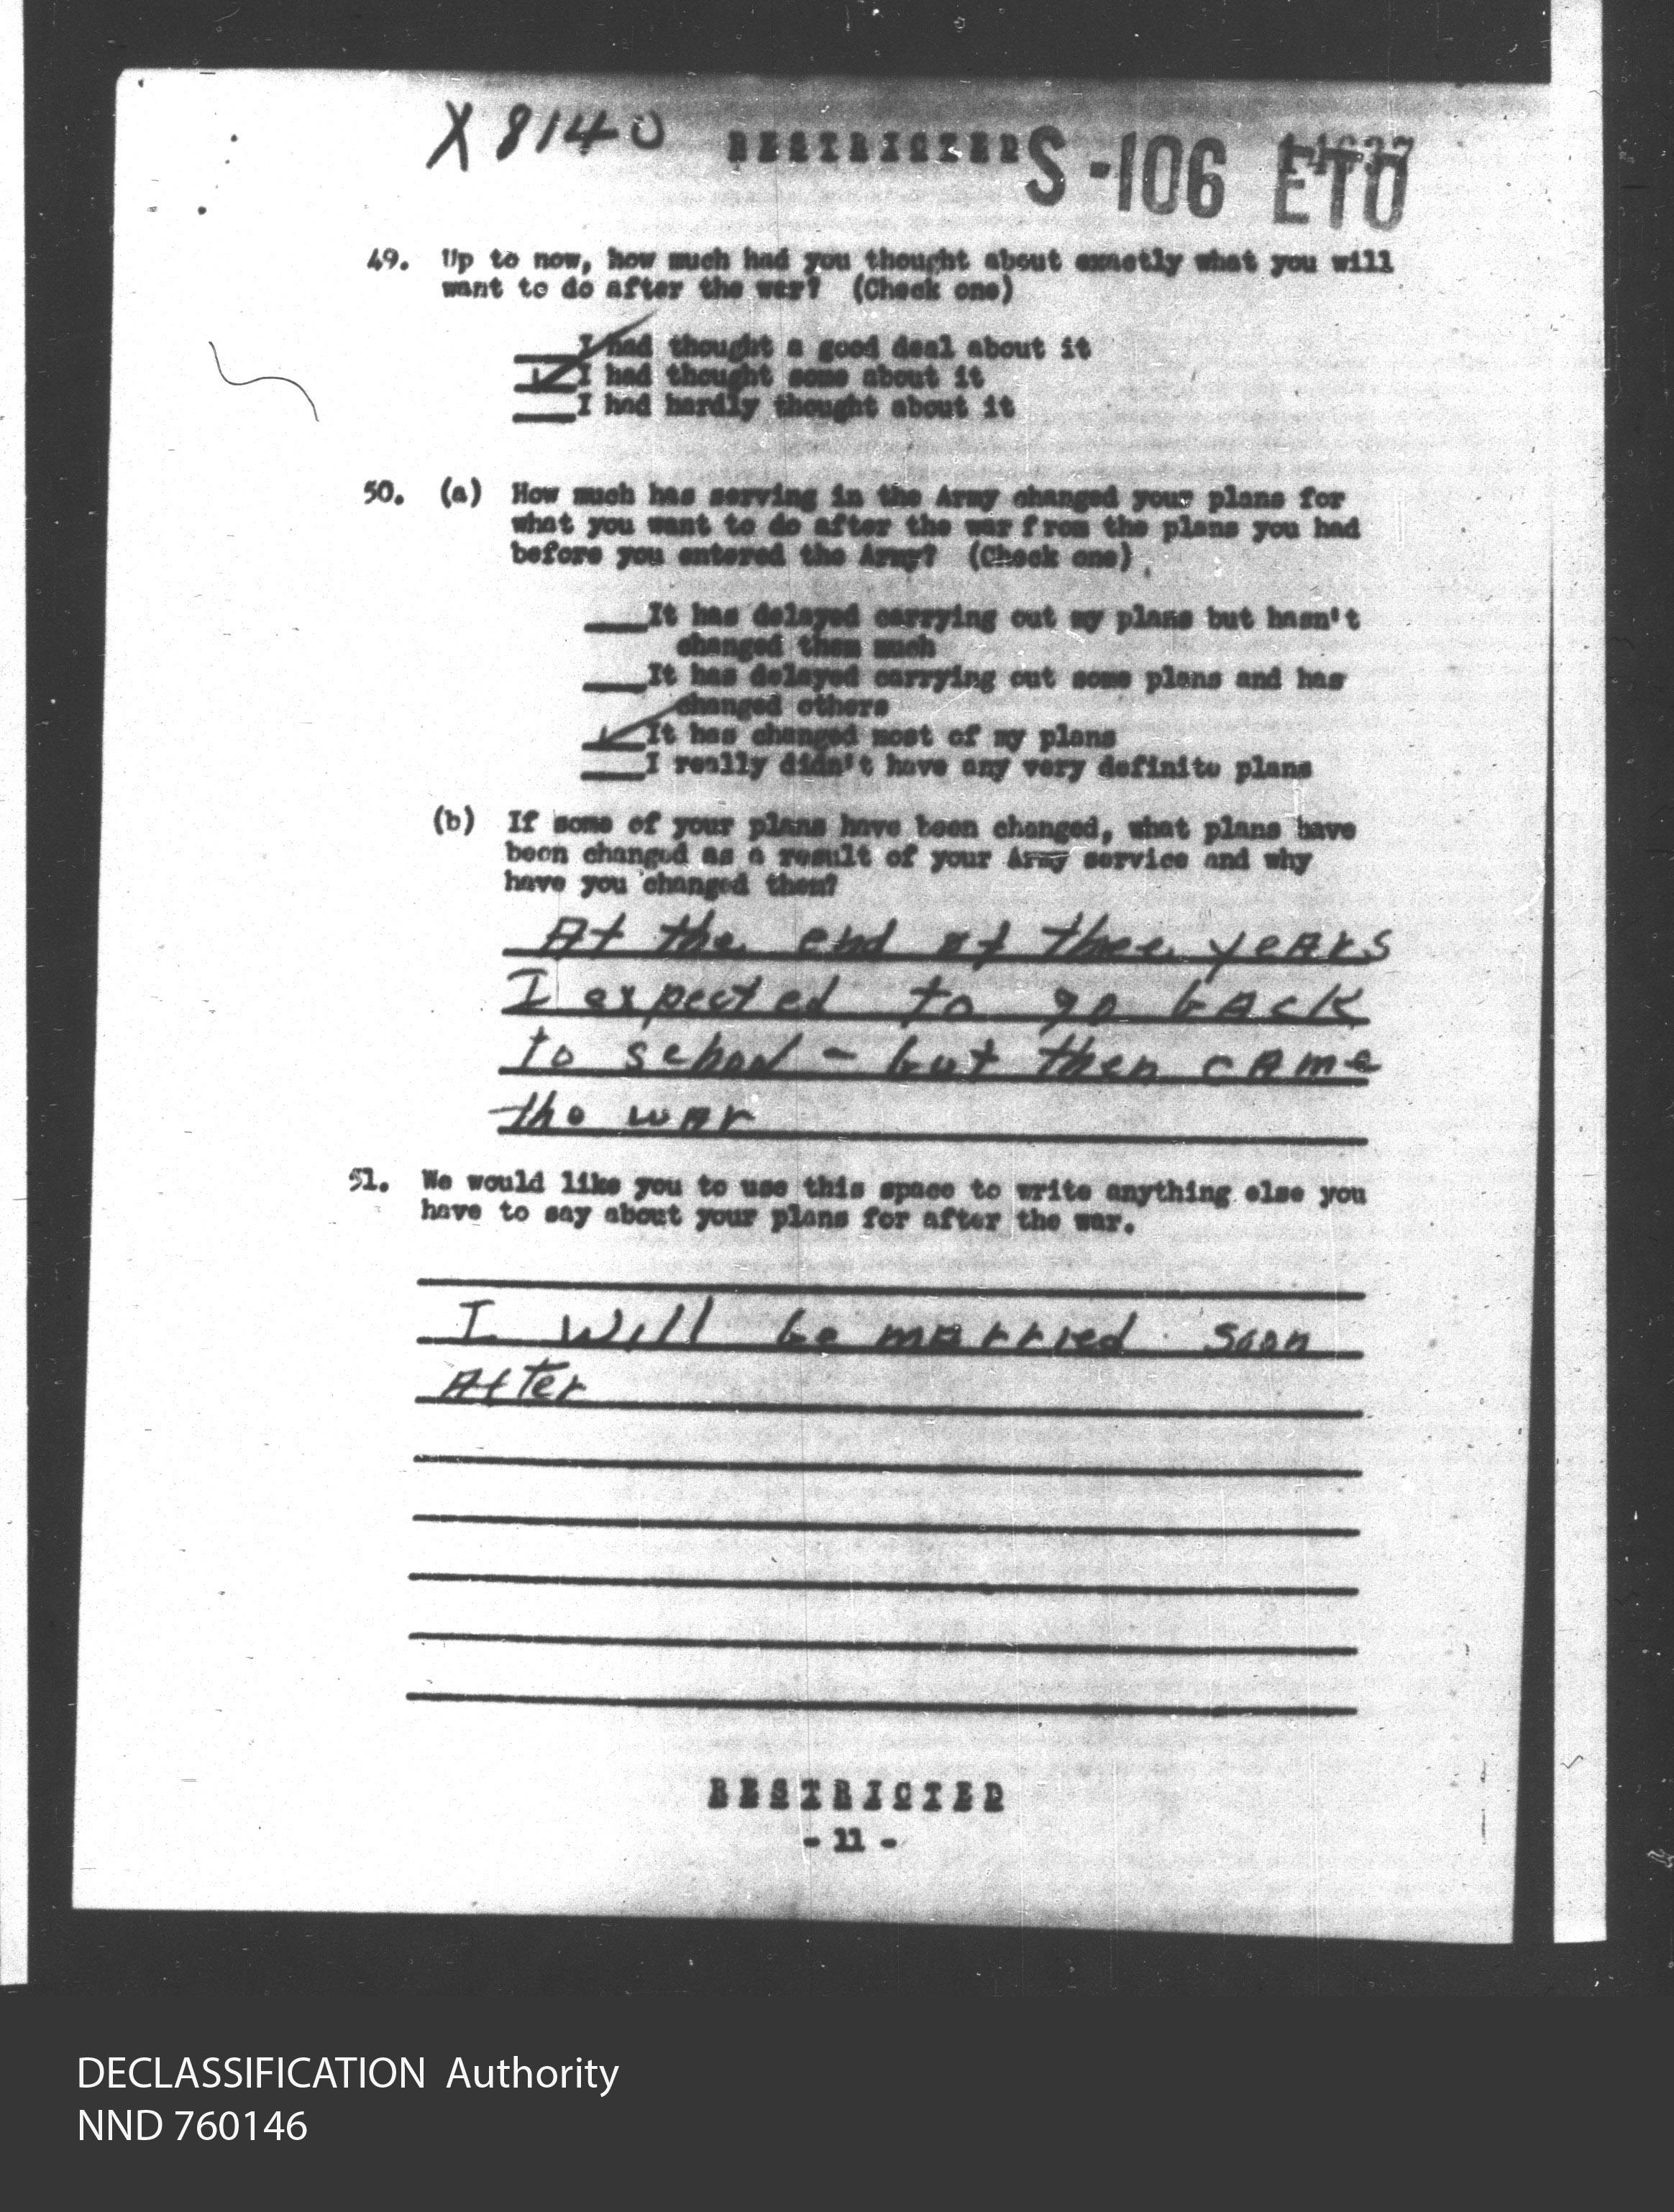 X 8140 RESTRICTED S-106 ETO
49. Up to now, how much had you thought about exactly what you will
want to do after the war? (Check one)
___I had thought a good deal about it
_✓_I had thought some about it
___I had hardly thought about it
50. (a) How much has serving in the Army changed your plans for
what you want to do after the war from the plans you had
before you entered the Army? (Check one)
___It has delayed carrying out my plans but hasn't
changed them much
___It has delayed carrying out some plans and has
changed others
_✓_It has changed most of my plans
___I really didn't have any very definite plans
(b) If some of your plans have been changed, what plans have
been changed as a result of your Army service and why
have you changed them?
At the end of three years
I expected to go back
to school - but then came
the war
51. We would like you to use this space to write anything else you
have to say about your plans for after the war.
I will be married soon
After
RESTRICTED
- 11 -
DECLASSIFICATION Authority
NND 760146